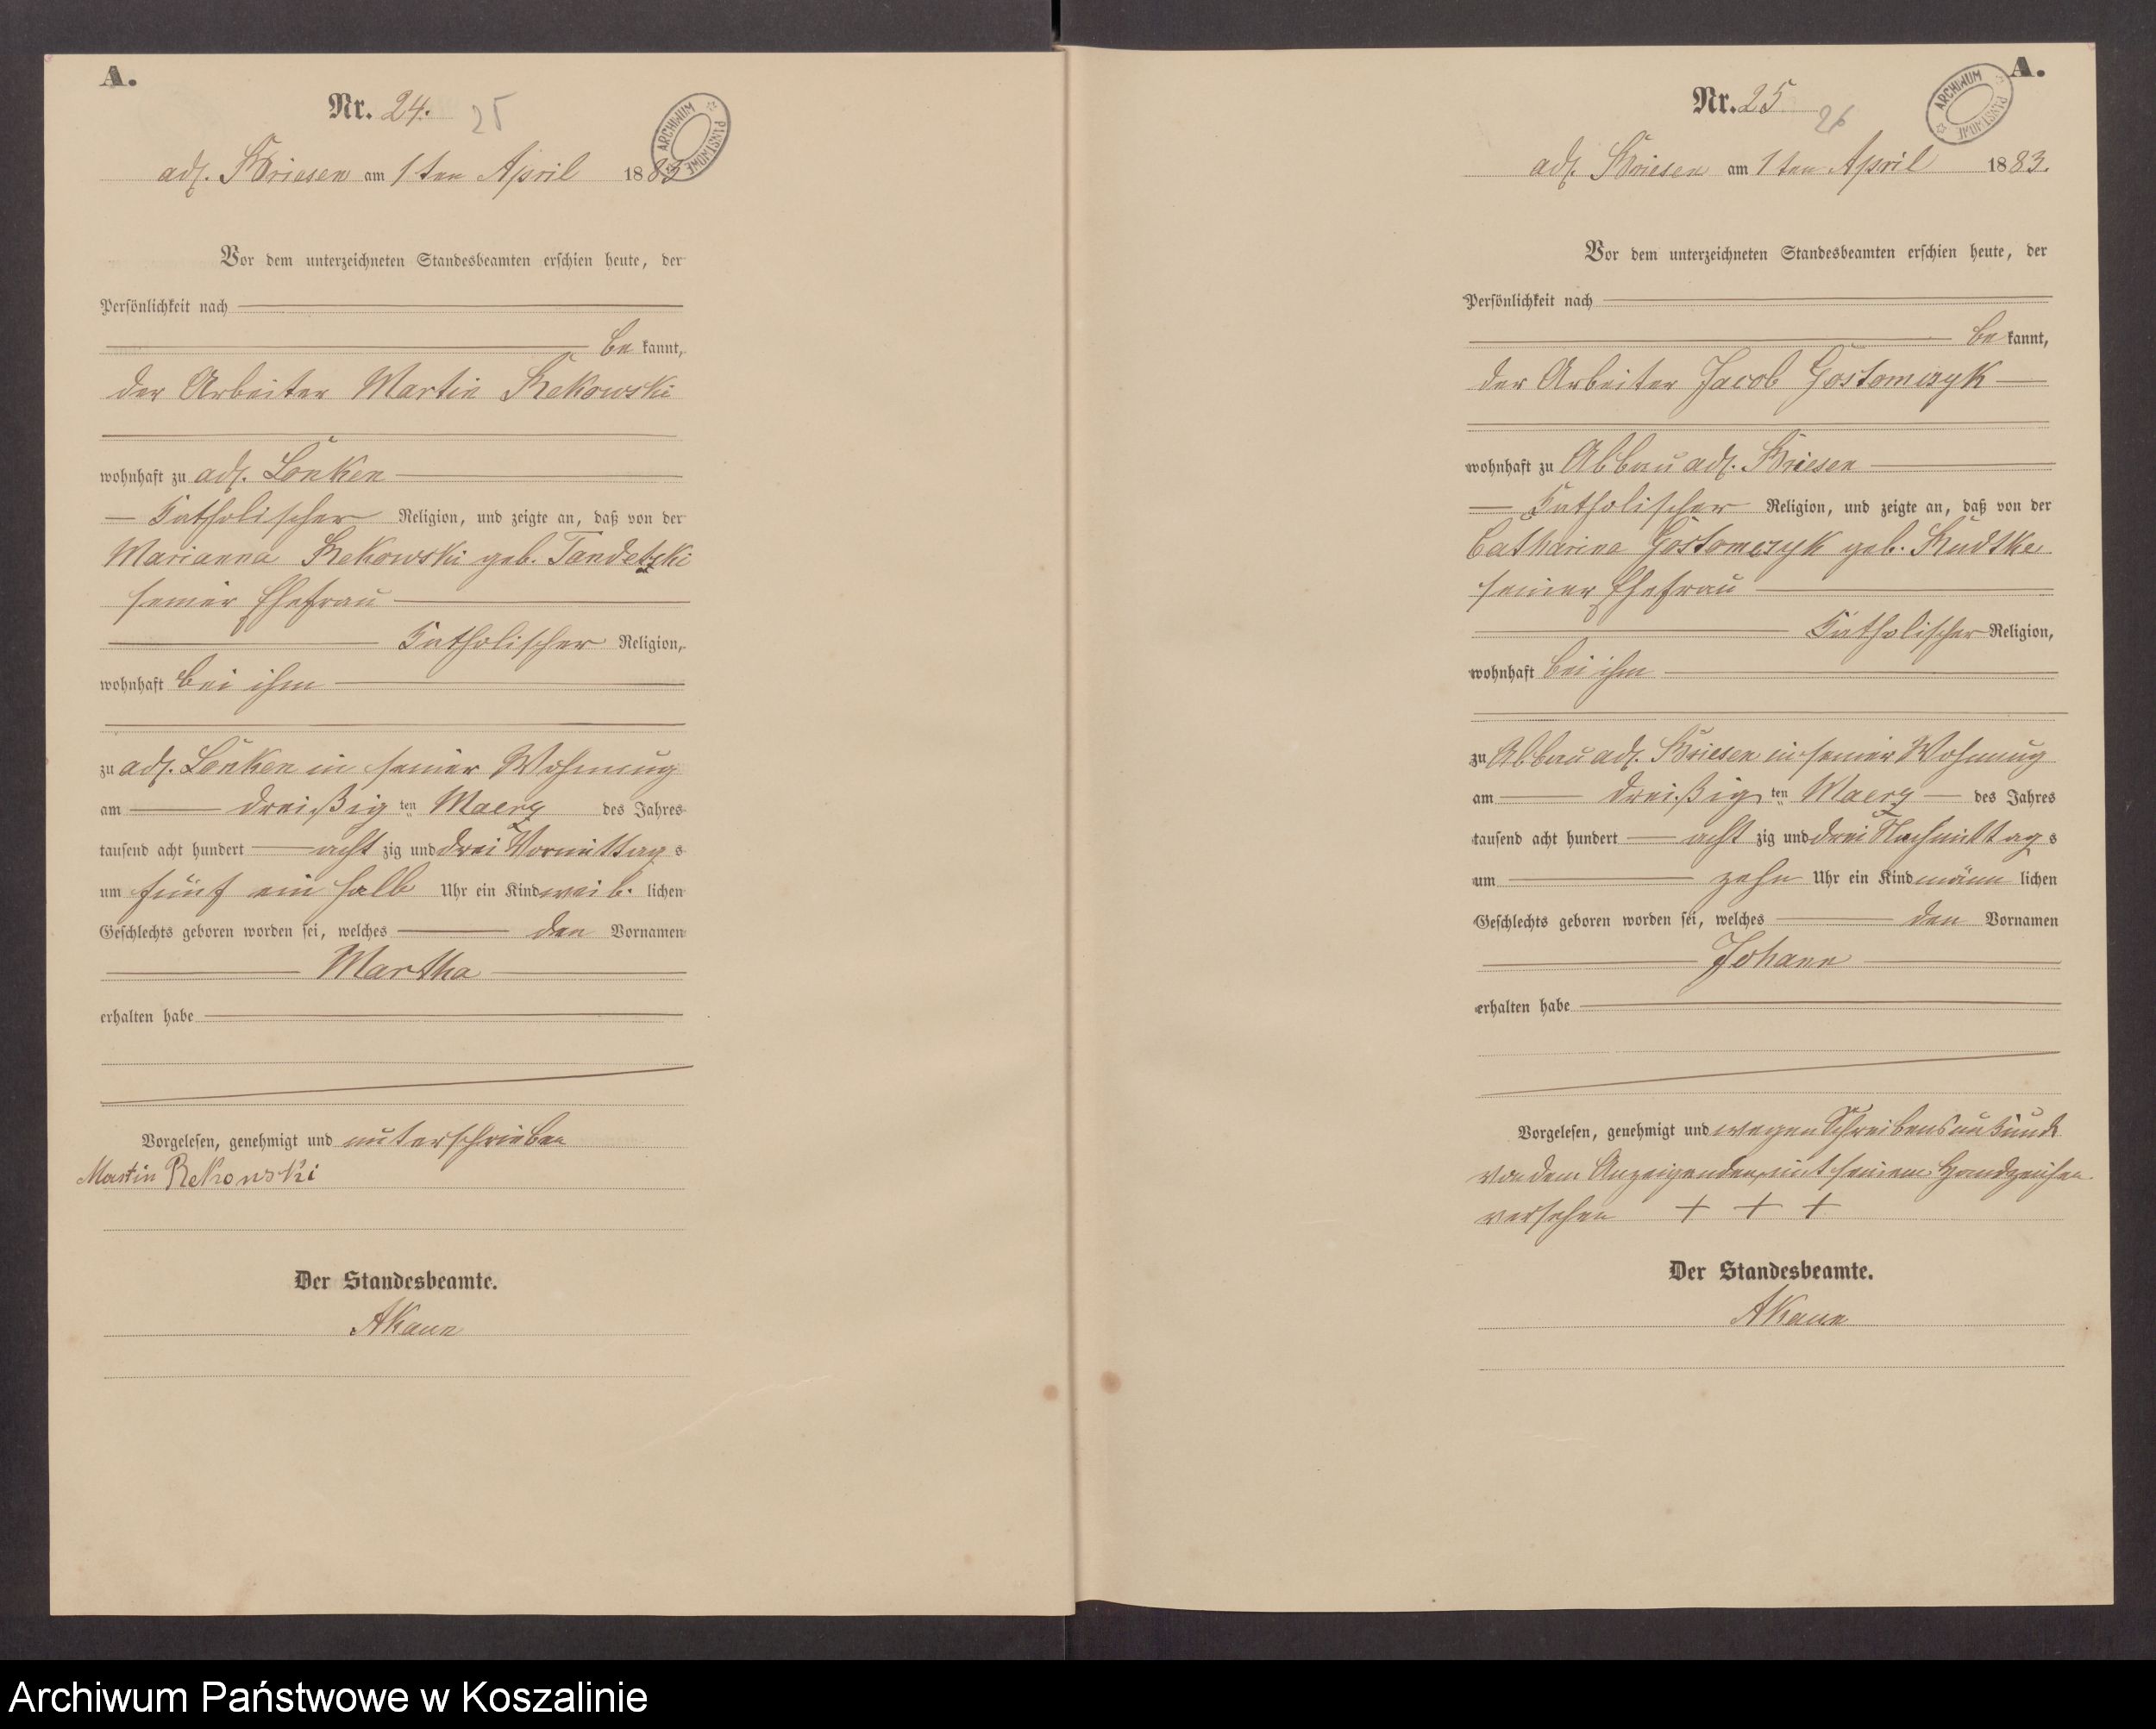 A.
Nr. 24.
25
ARCHIWUM PAŃSTWOWE
adl. Briesen am 1ten April 1883
Vor dem unterzeichneten Standesbeamten erschien heute, der
Persönlichkeit nach
be kannt,
der Arbeiter Martin Rekowski
wohnhaft zu adl. Lonken
Katholischer Religion, und zeigte an, daß von der
Marianna Rekowski geb.
seiner Ehefrau
Katholischer Religion,
wohnhaft bei ihm
zu adl. Lonken in seiner Wohnung
am dreißig ten Maerz des Jahres
tausend acht hundert acht zig und drei Vormittag s
um fünf ein halb Uhr ein Kind weib. lichen
Geschlechts geboren worden sei, welches den Vornamen
Martha
erhalten habe
Vorgelesen, genehmigt und unterschrieben
Martin Rekowski
Der Standesbeamte.
AKaun
A.
Nr. 25
26
ARCHIWUM PAŃSTWOWE
adl. Briesen am 1ten April 1883.
Vor dem unterzeichneten Standesbeamten erschien heute, der
Persönlichkeit nach
be kannt,
der Arbeiter Jacob Gostomczyk
wohnhaft zu Abbau adl. Briesen
Katholischer Religion, und zeigte an, daß von der
Catharina Gostomczyk geb. Rudtke
seiner Ehefrau
Katholischer Religion,
wohnhaft bei ihm
zu Abbau adl. Briesen in seiner Wohnung
am dreißig ten Maerz des Jahres
tausend acht hundert acht zig und drei Nachmittag s
um zehn Uhr ein Kind männ lichen
Geschlechts geboren worden sei, welches den Vornamen
Johann
erhalten habe
Vorgelesen, genehmigt und wegen Schreibensunkunde
von dem Anzeigenden mit seinem Handzeichen
versehen + + +
Der Standesbeamte.
AKaun
Archiwum Państwowe w Koszalinie